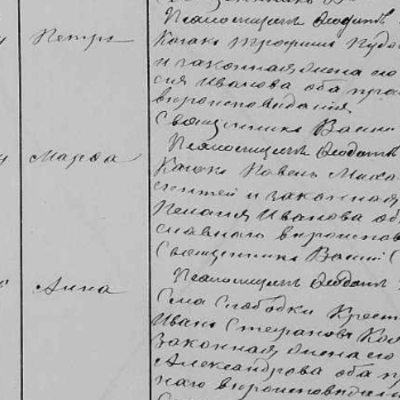 Псаломщикъ Ѳеодотъ
Петръ
Казакъ Трофимъ Кудо
и законная жена его
сія Иванова оба пра
вѣроисповѣданія.
Священникъ Васи
Псаломщикъ Ѳеодотъ
Марѳа
Казакъ Павелъ Миха
и законная
Пелагія Иванова об
славнаго вѣроиспов
Священникъ Васи
Псаломщикъ Ѳеодотъ
Анна
Села Слободки Крест
Иванъ Стефановъ
законная жена его
Александрова оба пр
наго вѣроисповѣдан